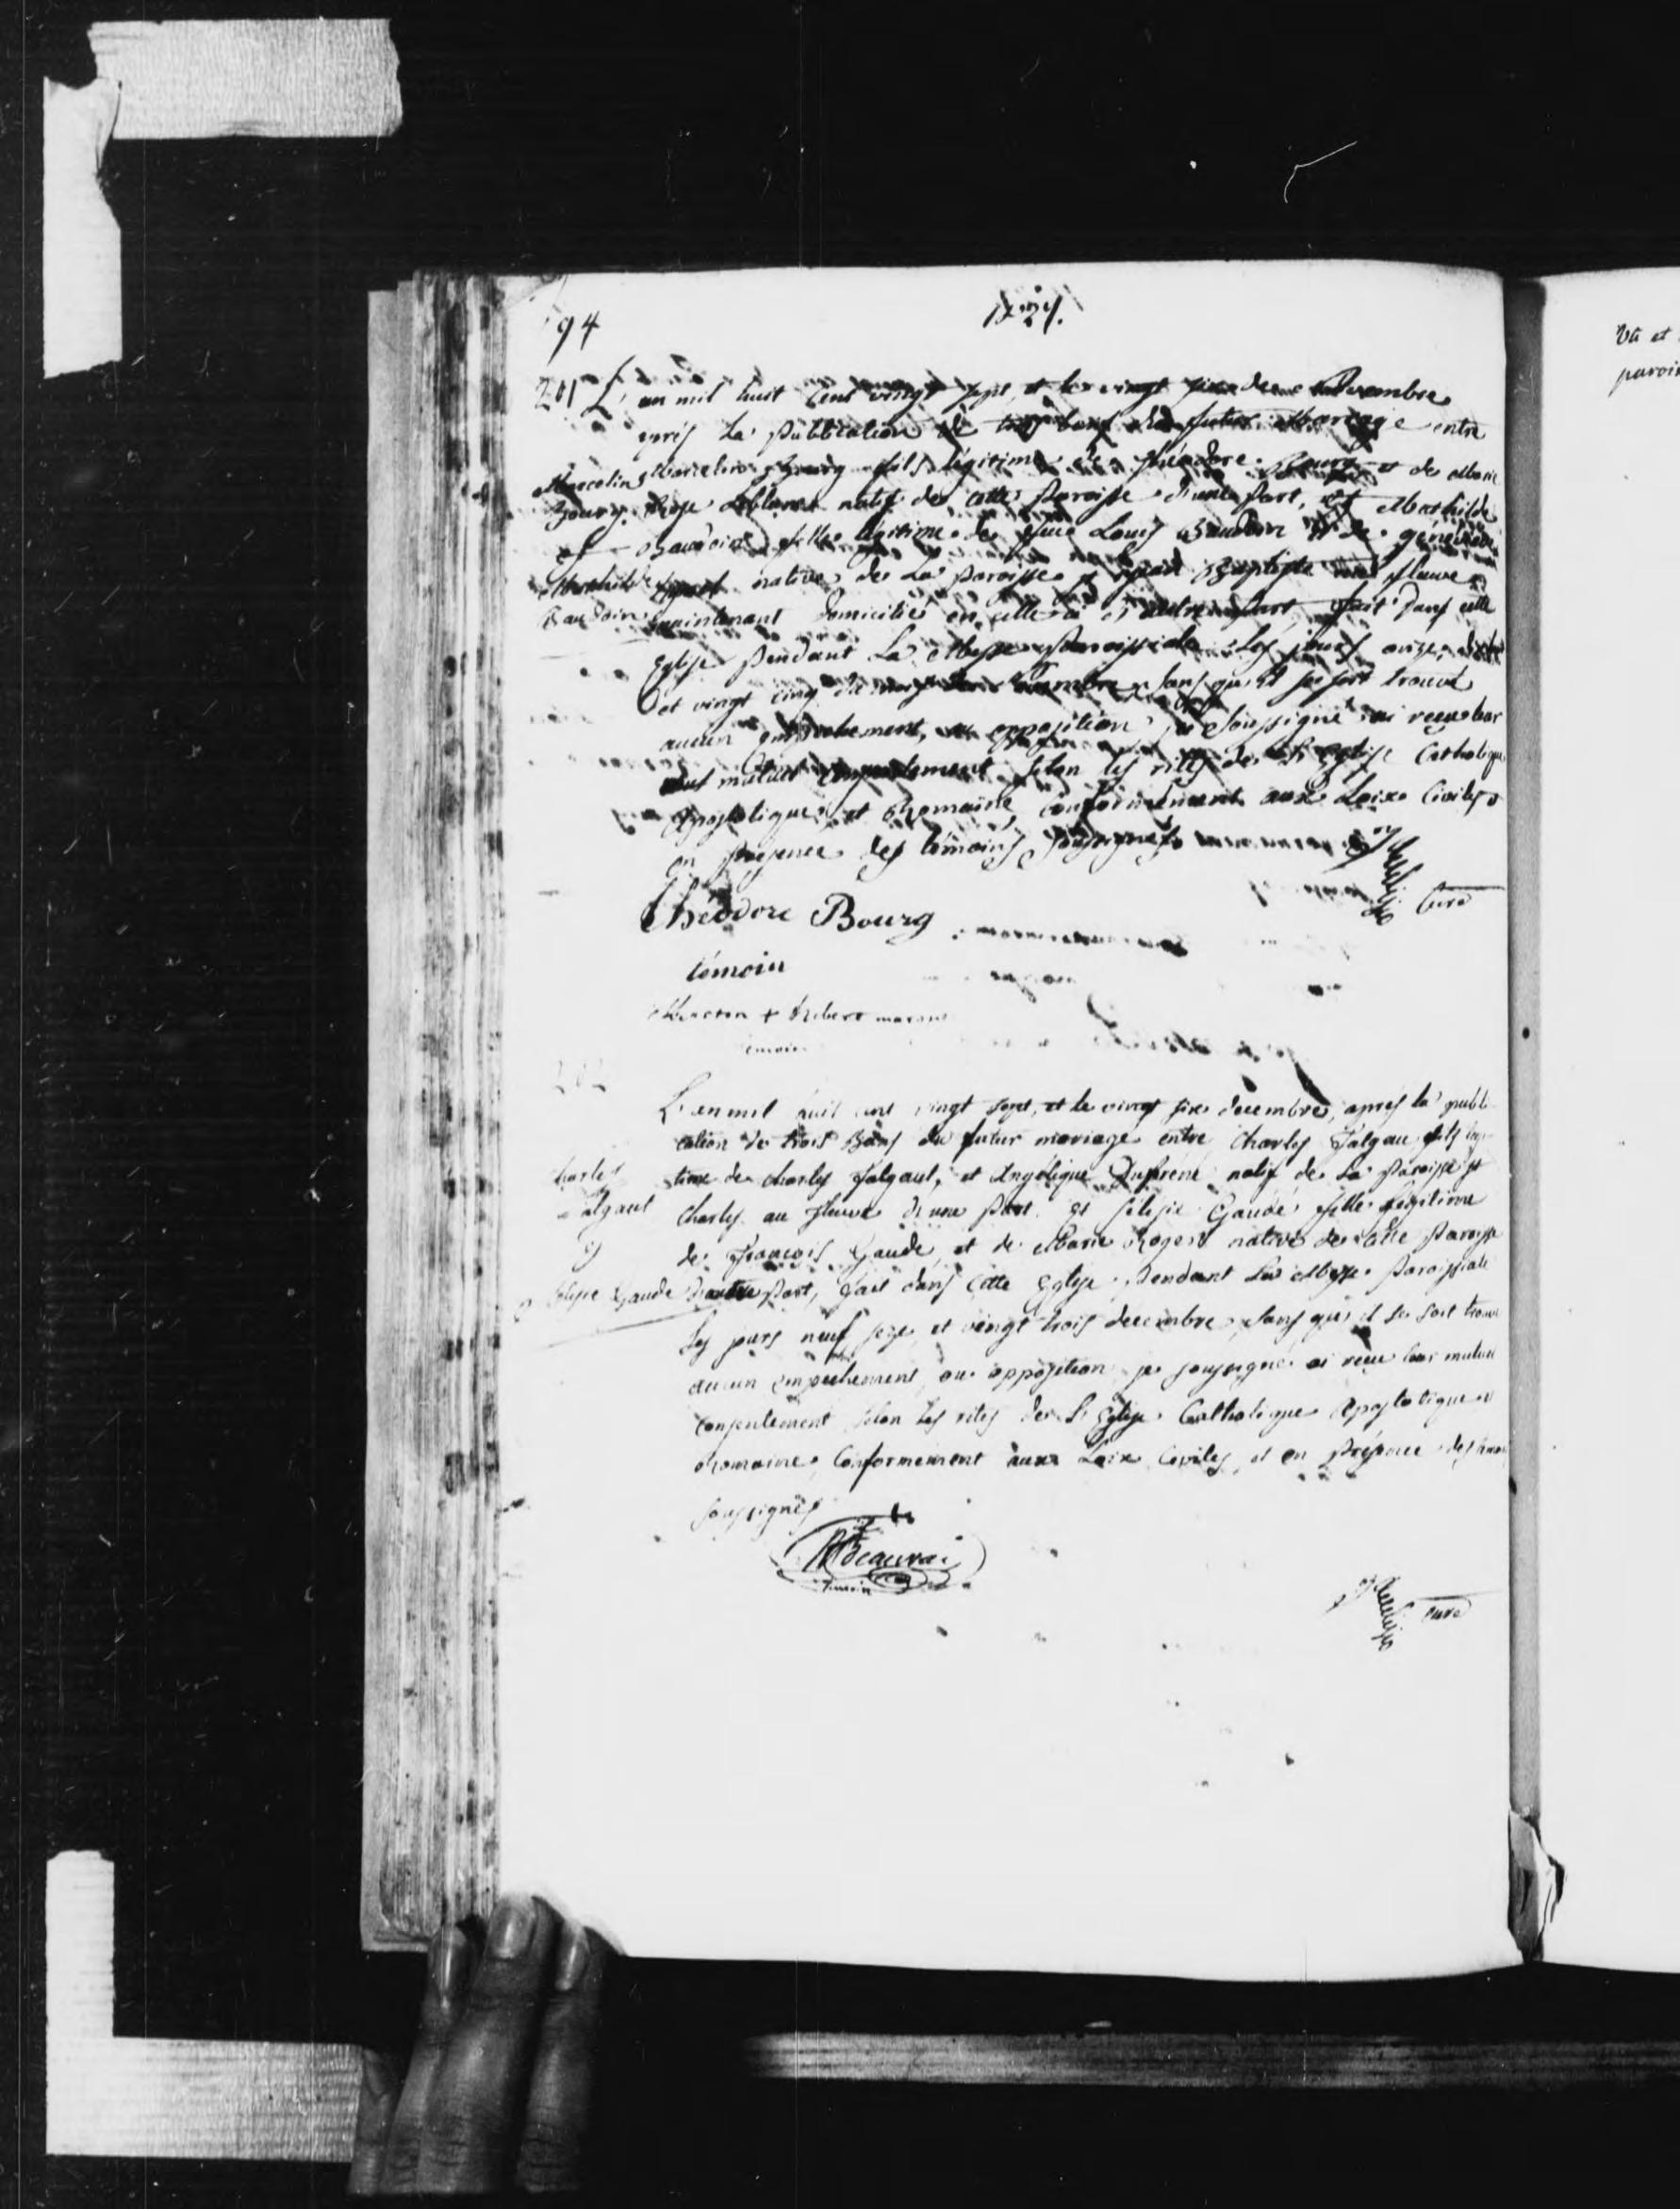 94
1827.
201 L'an mil huit cent vingt sept, et le vingt six de Novembre
après la publication de trois bans du futur mariage entre
Marcelin Bourg fils légitime de Théodore Bourg et de Marie
Rose Leblanc natif de cette Paroisse d'une Part, et Mathilde
Baudoin fille légitime de feue Louis Baudoin et de généviève
native de La paroisse st jean Baptiste au fleuve
maintenant domiciliée en celle ci d'autre Part, fait dans cette
Eglise Pendant La Messe Paroissiale Les jours onze,
et vingt cinq du mois de Novembre, sans qu'il se soit trouvé
aucun empechement, ou opposition, je soussigné ai reçu leur
mutuel consentement selon les rites de L'Eglise Catholique
Apostolique et Romaine, conformément aux Loix Civiles
en présence des témoins soussignés
Marcelin
Bourg
et
Mathilde
Baudoin
Curé
Théodore Bourg
témoin
+ hebert
temoin
202
L'an mil huit cent vingt sept, et le vingt six decembre, après la publi
cation de trois Bans du futur mariage entre Charles Falgau fils legi
time de Charles falgaut, et Angélique Dufrene natif de La Paroisse st
Charles au fleuve d'une Part et félisie Gaudé fille légitime
de François Gaudé, et de Marie Roger native de cette Paroisse
d'autre Part, fait dans cette Eglise Pendant La Messe Paroissiale
Les jours neuf seize et vingt trois decembre, sans qu'il se soit trouvé
aucun empechement ou opposition je soussigné ai reçu leur mutuel
consentement selon les rites de L'Eglise Catholique Apostolique et
Romaine, Conformement aux Loix Civiles, et en Présence des
soussignés
Charles
falgaut
et
félisie Gaudé
Beauvai
Temoin
curé
Vû et
paroi